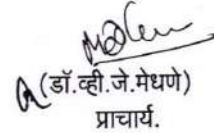 (डॉ.व्ही.जे.मेधणे)
प्राचार्य.